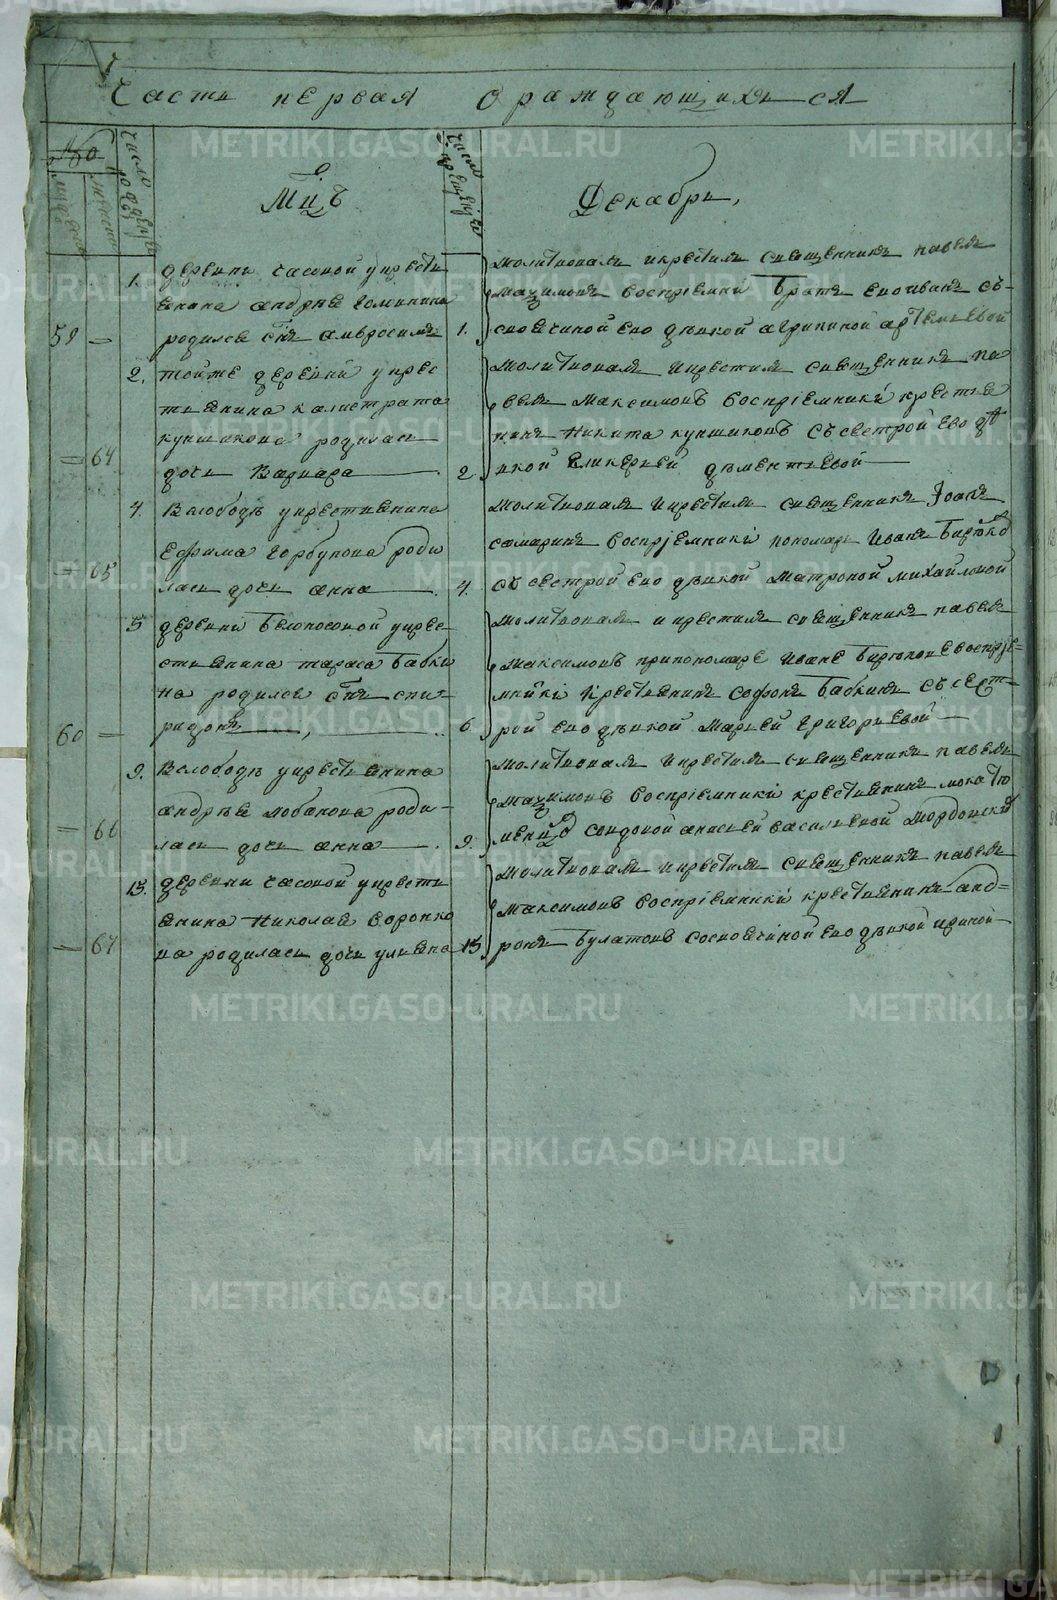 Часть первая о раждающихся
Число рожденiя
Число крещенiя
Мцъ
Декабрь,
1. деревни часовой у крестья
янина андрея
59 — родился снъ амвросимъ
молитвовалъ и крестилъ священникъ павелъ
Маѯимовъ воспрiемни братъ ево иванъ съ
1. своячиной ево дѣвкой агрипиной артемьевой
2. той же деревни у крес
тьянина калистрата
купшикова родилась
— 64 дочь варвара
молитвовалъ и крестилъ священникъ па
велъ Максимовъ воспрiемники крестья
нинъ Никита купшиковъ съ сестрой ево дѣ
2. вкой гликерiей дементьевой
4. В слободѣ у крестьянина
Ефима горбунова роди
— 65 лась дочь анна
молитвовалъ и крестилъ священникъ Iоанъ
самаринъ воспрiемники пономарь Иванъ Бирюков
4. съ сестрой ево дѣвкой Матроной михайловой
5 деревни Белоносовой у крес
стьянина тараса бабки
на родился снъ спи-
60 — ридонъ
молитвовалъ и крестилъ священникъ павелъ
Максимовъ при пономаре Иване Бирюкове воспрiе-
мники крестьянинъ софонъ бабкинъ съ сест-
6 рой ево дѣвкой Марьей григорьевой
9. В слободѣ у крестьянина
андрея лобанова роди-
— 66 лась дочь анна
молитвовалъ и крестилъ священникъ павелъ
Маѯимовъ воспрiемники крестьянинъ
9. вдовой васильевой
15. деревни часовой у крестья
янина Николая воронко
— 67 ва родилась дочь ульяна
молитвовалъ и крестилъ священникъ павелъ
Максимовъ воспрiемники крестьянинъ анд-
15 ронъ Булатовъ со своячиной ево дѣвкой ириной
METRIKI.GASO-URAL.RU